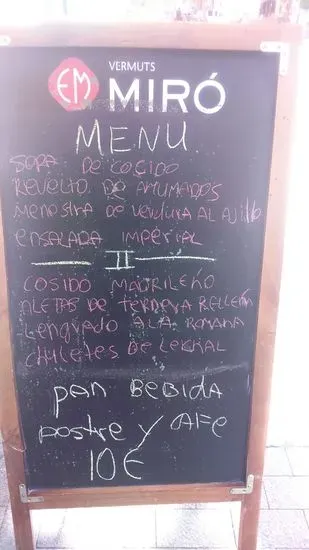 EM
VERMUTS
MIRÓ
MENU
SOPA DE COCIDO
REVUELTO DE AHUMADOS
MENOSTRA DE VERDURA AL AJILLO
ENSALADA IMPERIAL
II
COSIDO MADRILEÑO
ALETAS DE TERNERA RELLENA
LENGUADO A LA ROMANA
CHULETES DE LECHAL
PAN BEBIDA
POSTRE Y CAFE
10€